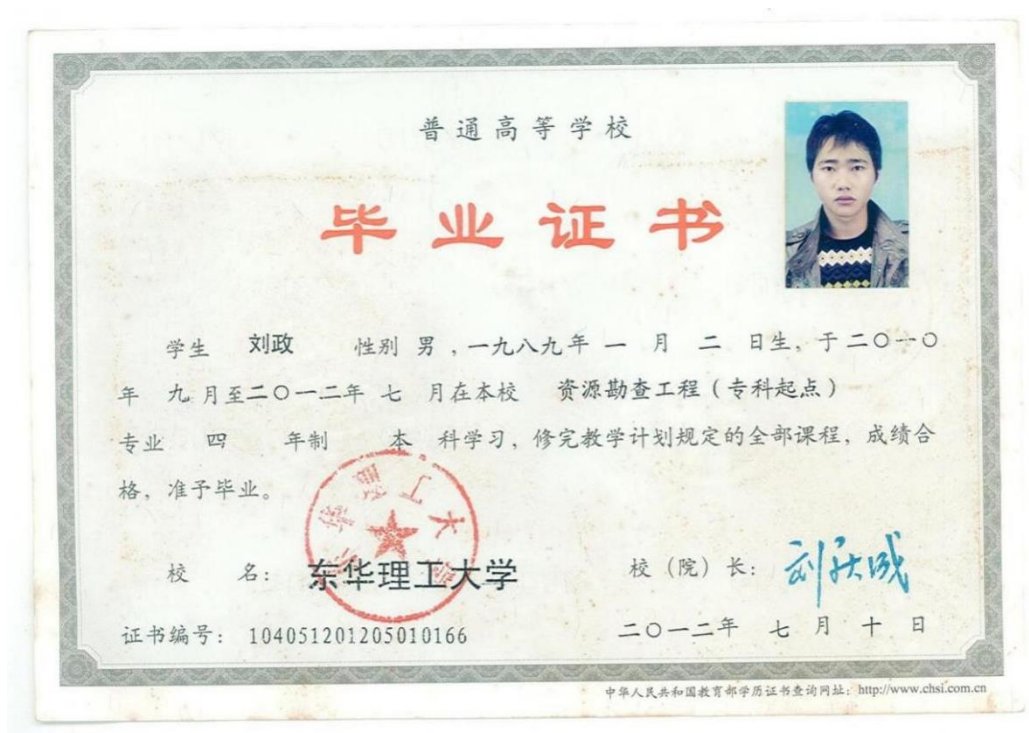 普通高等学校
毕业证书
学生 刘政 性别 男，一九八九年 一 月 二 日生，于二〇一〇
年 九 月至二〇一二年 七 月在本校 资源勘查工程（专科起点）
专业 四 年制 本 科学习，修完教学计划规定的全部课程，成绩合
格，准予毕业。
东华理工大学
校 名： 东华理工大学 校（院）长：
证书编号： 104051201205010166 二〇一二年 七 月 十 日
中华人民共和国教育部学历证书查询网址：http://www.chsi.com.cn